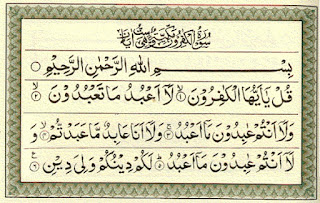 سُوْرَةُ الْكٰفِرُوْنَ مَكِّيَّةٌ وَّهِيَ سِتُّ اٰيَاتٍ
بِسْمِ اللهِ الرَّحْمٰنِ الرَّحِيْمِ ○
قُلْ يٰٓاَيُّهَا الْكٰفِرُوْنَ ۙ﴿١﴾ لَآ اَعْبُدُ مَا تَعْبُدُوْنَ ۙ﴿٢﴾
وَلَآ اَنْتُمْ عٰبِدُوْنَ مَآ اَعْبُدُ ۚ﴿٣﴾ وَلَآ اَنَا عَابِدٌ مَّا عَبَدْتُّمْ ۙ﴿٤﴾ وَ
لَآ اَنْتُمْ عٰبِدُوْنَ مَآ اَعْبُدُ ؕ﴿٥﴾ لَكُمْ دِيْنُكُمْ وَلِيَ دِيْنِ ﴿٦﴾